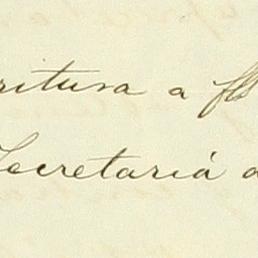 ritura a fls
Secretariá d